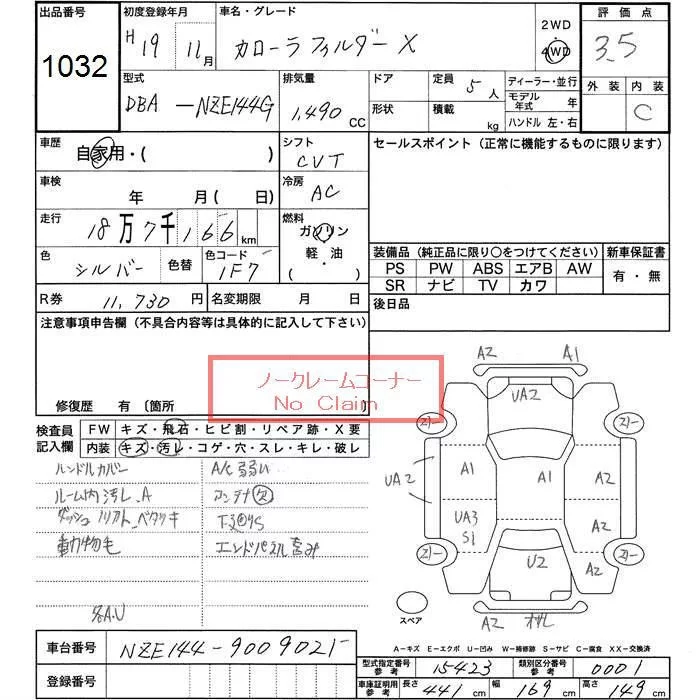 出品番号 1032
初度登録年月 H19年 11月
車名・グレード カローラフィルダー X
2WD・4WD
評価点 3.5
外装 内装 C
型式 DBA-NZE144G
排気量 1,490 CC
ドア 形状
定員 5人
積載 kg
ディーラー・並行
モデル年式 年
ハンドル 左・右
車歴 自家用・( )
シフト CVT
セールスポイント(正常に機能するものに限ります)
車検 年 月(日)
冷房 AC
走行 18万7千166km
燃料 ガソリン 軽・油 ( ・ )
色 シルバー 色替 色コード 1F7
装備品(純正品に限り○をつけてください) 新車保証書
PS PW ABS エアB AW 有・無
SR ナビ TV カワ
R券 11,730円 名変期限 月 日
後日品
注意事項申告欄(不具合内容等は具体的に記入して下さい)
ノークレームコーナー
No Claim
修復歴 有 〔箇所
検査員記入欄 FW キズ・飛石・ヒビ割・リペア跡・X要
内装 キズ・汚レ・コゲ・穴・スレ・キレ・破レ
ハンドルカバー A/C弱い
ルーム内汚レ.A アンテナ欠
ダッシュ ベタツキ
動物毛 エンドパネル凹み
各A.U
A2 A1
UA2
UA2 A1 A1 A2
UA3 S1 A2
U2 A2
A2
スペア
A-キズ E-エクボ U-凹み W-補修跡 S-サビ C-腐食 XX-交換済
車台番号 NZE144-9009021
登録番号
型式指定番号 参考 15423 類別区分番号 参考 0001
車庫証明用 参考 長さ 441cm 幅 169cm 高さ 149cm